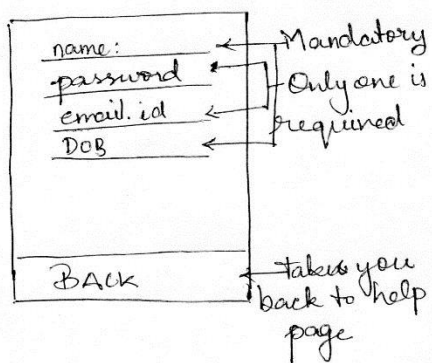 name:
password
email.id
DOB
BACK
Mandatory
Only one is
required
takes you
back to help
page